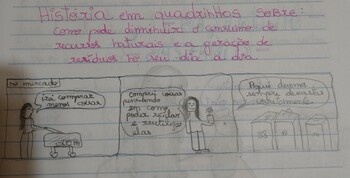 História em quadrinhos sobre:
Como pode diminuir o consumo de
recursos naturais e a geração de
resíduos no seu dia a dia.
no mercado
comprar
menos coisas
Comprei coisas
pensando
em como
poder reciclar
e reutilizar
elas
Aqui devemos
sempre descartar
corretamente